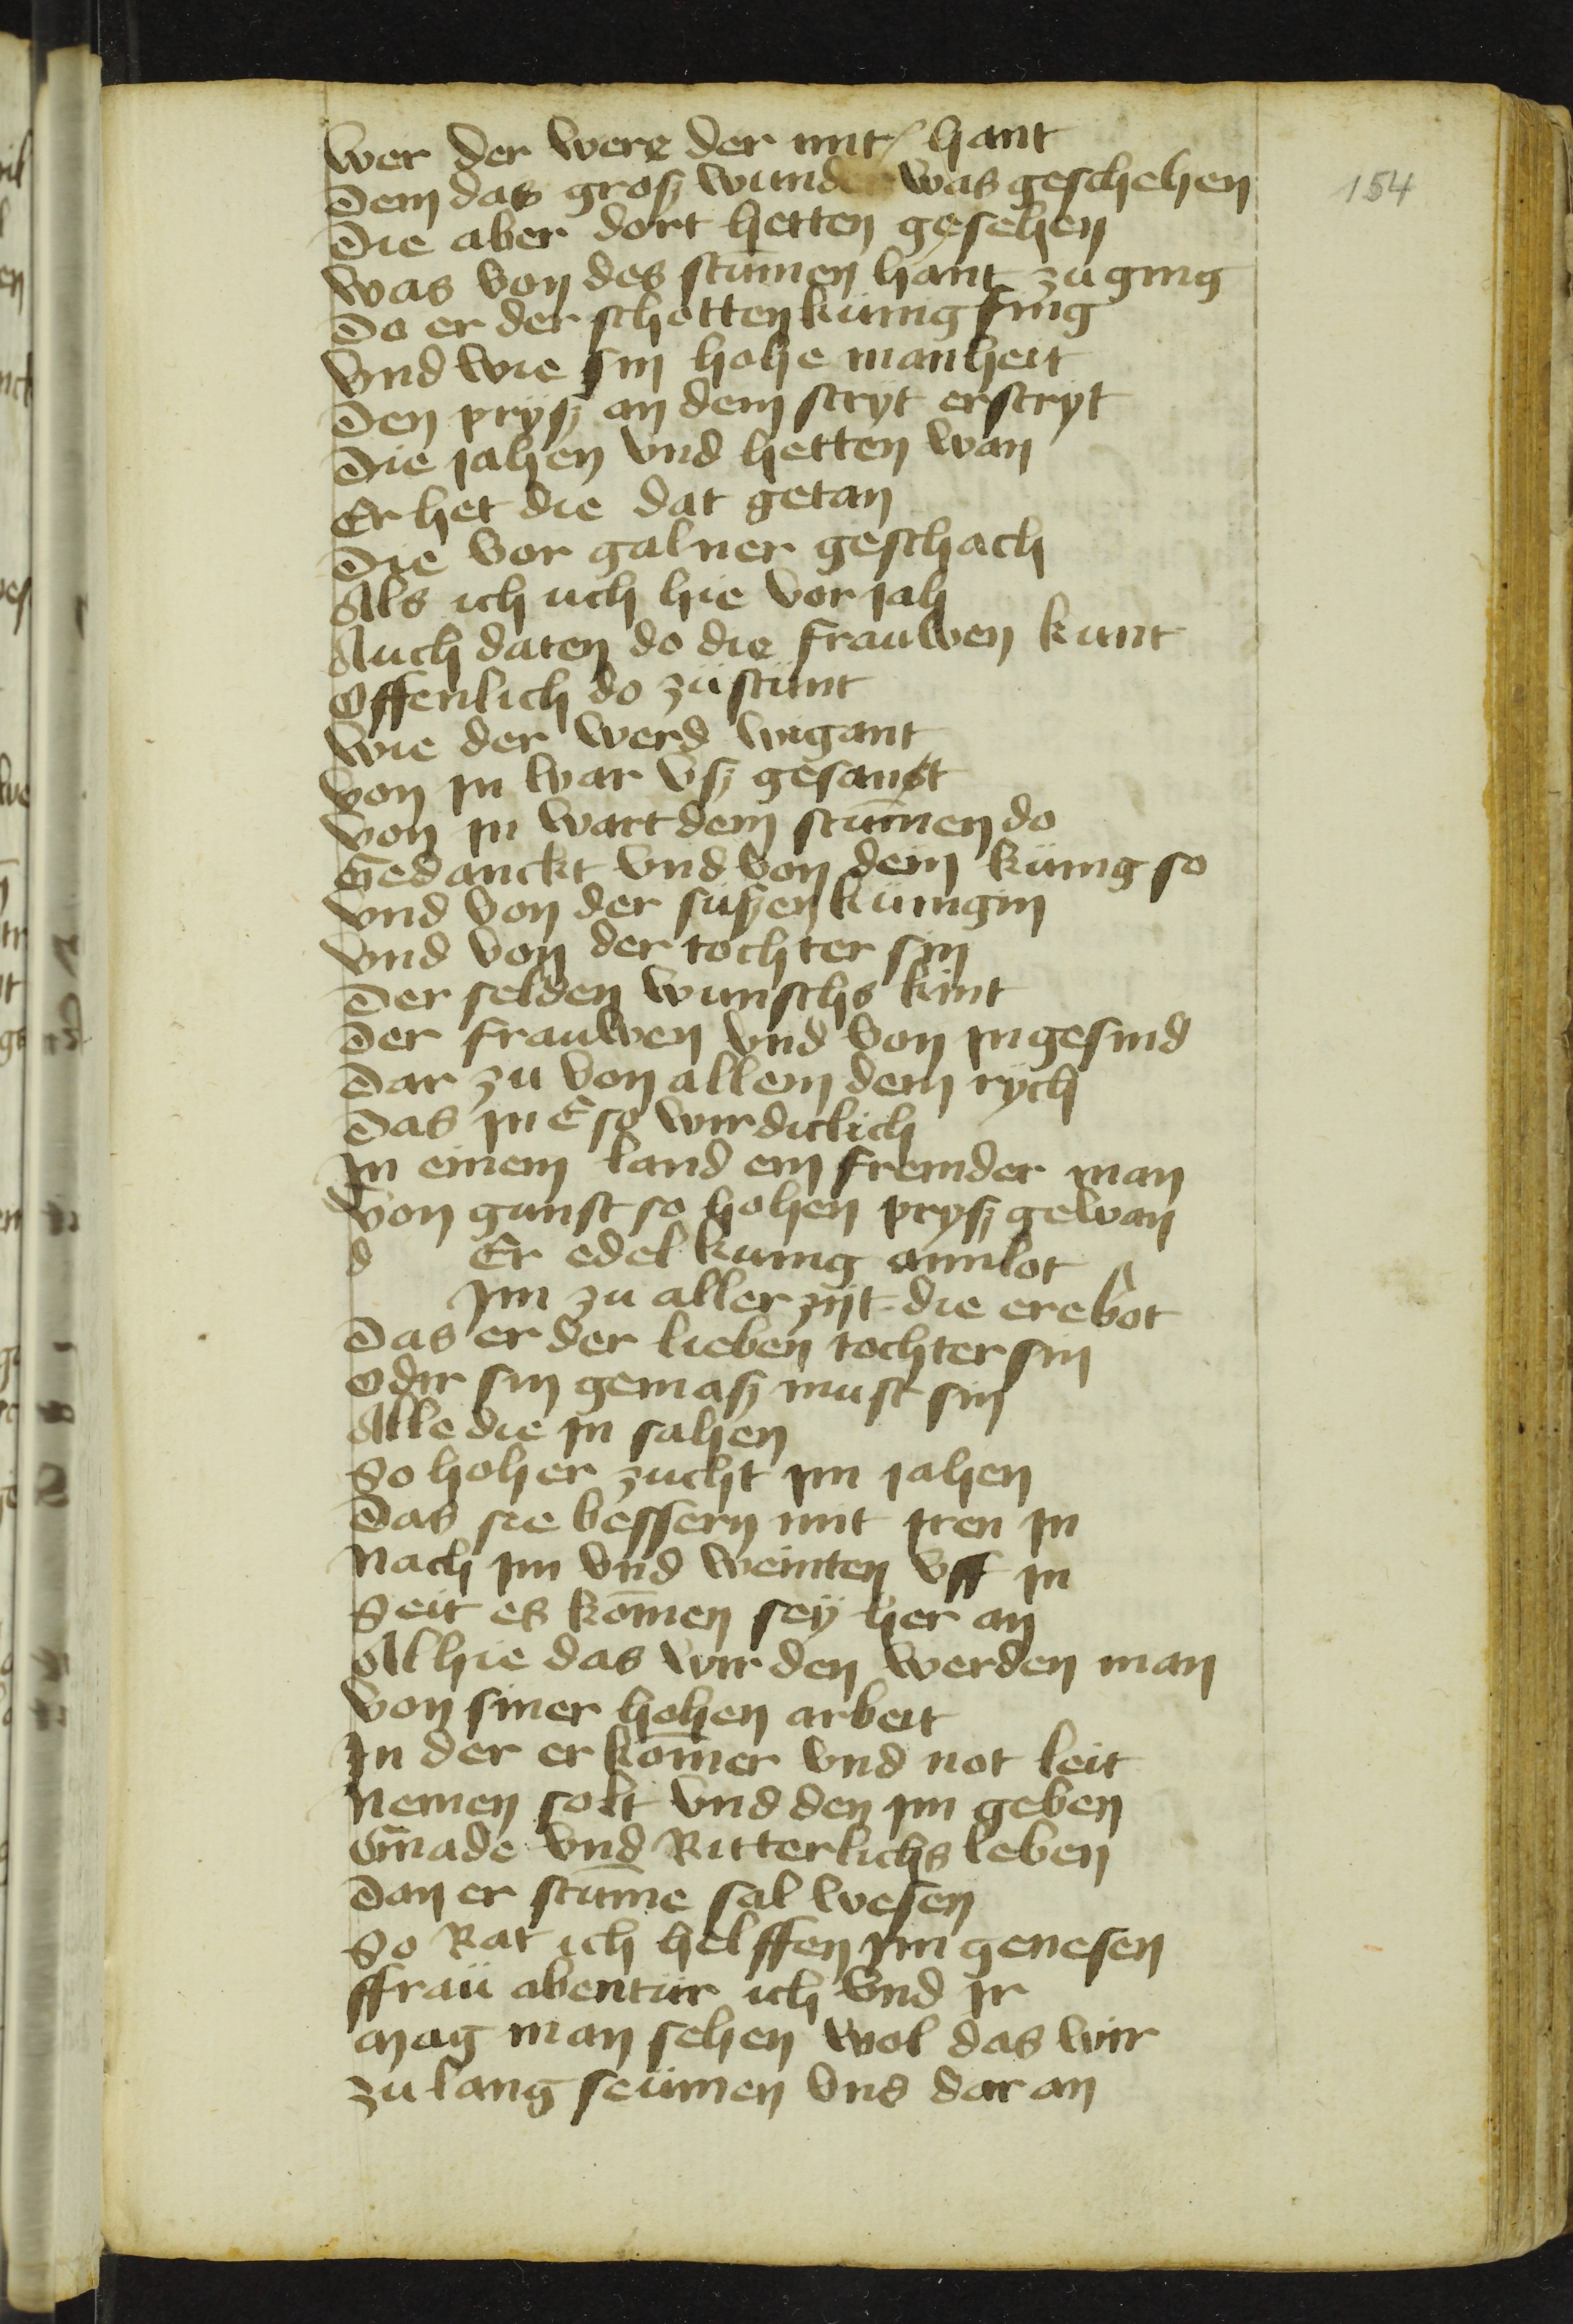 154
wer der were der mit hant
Dem das grosz wunder was geschehen
Die aber dort hetten gesehen
was von des stūmen hant zu ging
Do er der schotten künig fing
vnd wie sin hohe manheit
Den prysz an dem stryt erstryt
Die jahen vnd hetten wan
Er het die dat getan
Die vor galner geschach
Als ich uch hie vor jah
Auch daten do die frauwen kunt
Offenlich do zü stunt
wie der werd wigant
von jn war vsz gesant
von jn wart dem stūmen do
Gedanckt vnd von dem künig so
vnd von der süszen künigin
vnd von der tochter sin
Der selden wunschs kint
Der frauwen vnd von jn gesind
Dar zu von allem dem rych
Das jn E so wirdiclich
Jn einem land ein fremder man
von gunst so hohen prysz gewan
d Er edel kunig amilot
Jm zu aller zijt die ere bot
Das er der lieben tochter sin
Oder sin gemasz must sin
Alle die jn sahen
So hoher zucht jm jahen
Das sie bessern mit jren jn
Nach jm vnd weinten vff jn
Seit es kōmen sey her an
Al hie das wir den werden man
von siner hohen arbeit
Jn der er kōmer vnd not leit
Nemen solt vnd den jm geben
Gnade vnd Ritterlichs leben
Dan er stūme sal wesen
So Rat ich helffen jm genesen
ffraü abentür ich vnd jr
Mag man sehen wol das wir
zu lang seümen vns dar an